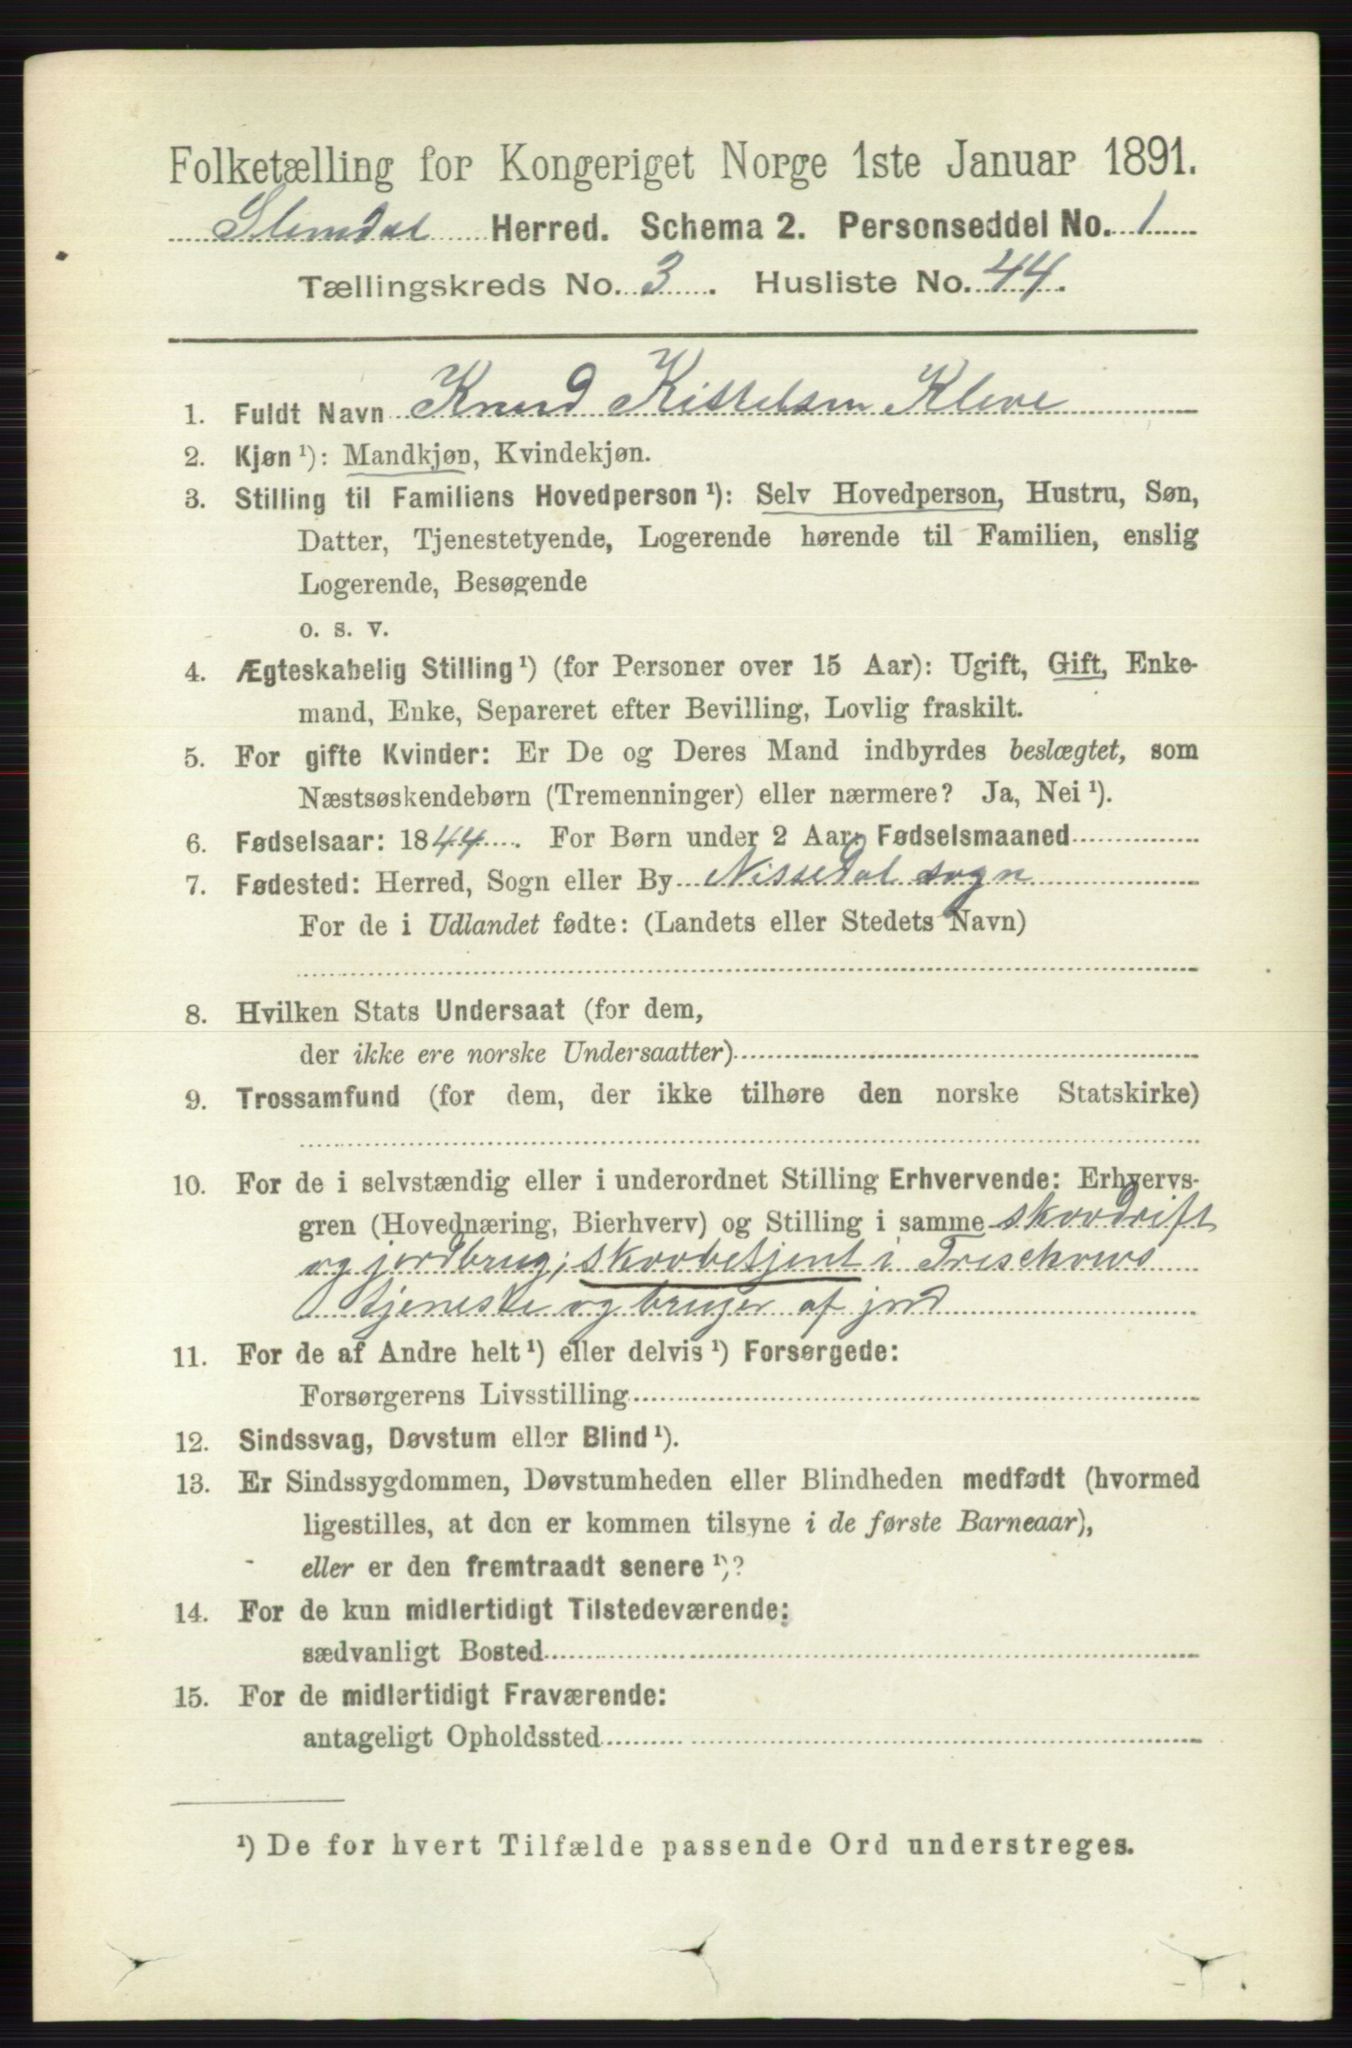 Folketælling for Kongeriget Norge 1ste Januar 1891.
Slemdal Herred. Schema 2. Personseddel No. 1
Tællingskreds No. 3. Husliste No. 44.
1. Fuldt Navn Knud Kittelsen Kleve
2. Kjøn ¹): Mandkjøn, Kvindekjøn.
3. Stilling til Familiens Hovedperson ¹): Selv Hovedperson, Hustru, Søn,
Datter, Tjenestetyende, Logerende hørende til Familien, enslig
Logerende, Besøgende
o. s. v.
4. Ægteskabelig Stilling ¹) (for Personer over 15 Aar): Ugift, Gift, Enke-
mand, Enke, Separeret efter Bevilling, Lovlig fraskilt.
5. For gifte Kvinder: Er De og Deres Mand indbyrdes beslægtet, som
Næstsøskendebørn (Tremenninger) eller nærmere? Ja, Nei ¹).
6. Fødselsaar: 1844. For Børn under 2 Aar, Fødselsmaaned
7. Fødested: Herred, Sogn eller By Nissedal sogn
For de i Udlandet fødte: (Landets eller Stedets Navn)
8. Hvilken Stats Undersaat (for dem,
der ikke ere norske Undersaatter)
9. Trossamfund (for dem, der ikke tilhøre den norske Statskirke)
10. For de i selvstændig eller i underordnet Stilling Erhvervende: Erhvervs-
gren (Hovednæring, Bierhverv) og Stilling i samme skovdrift
og jordbrug; skovbetjent i Treschows
tjeneste og bruger af jord
11. For de af Andre helt ¹) eller delvis ¹) Forsørgede:
Forsørgerens Livsstilling
12. Sindssvag, Døvstum eller Blind ¹).
13. Er Sindssygdommen, Døvstumheden eller Blindheden medfødt (hvormed
ligestilles, at den er kommen tilsyne i de første Barneaar),
eller er den fremtraadt senere ¹)?
14. For de kun midlertidigt Tilstedeværende:
sædvanligt Bosted
15. For de midlertidigt Fraværende:
antageligt Opholdssted
¹) De for hvert Tilfælde passende Ord understreges.